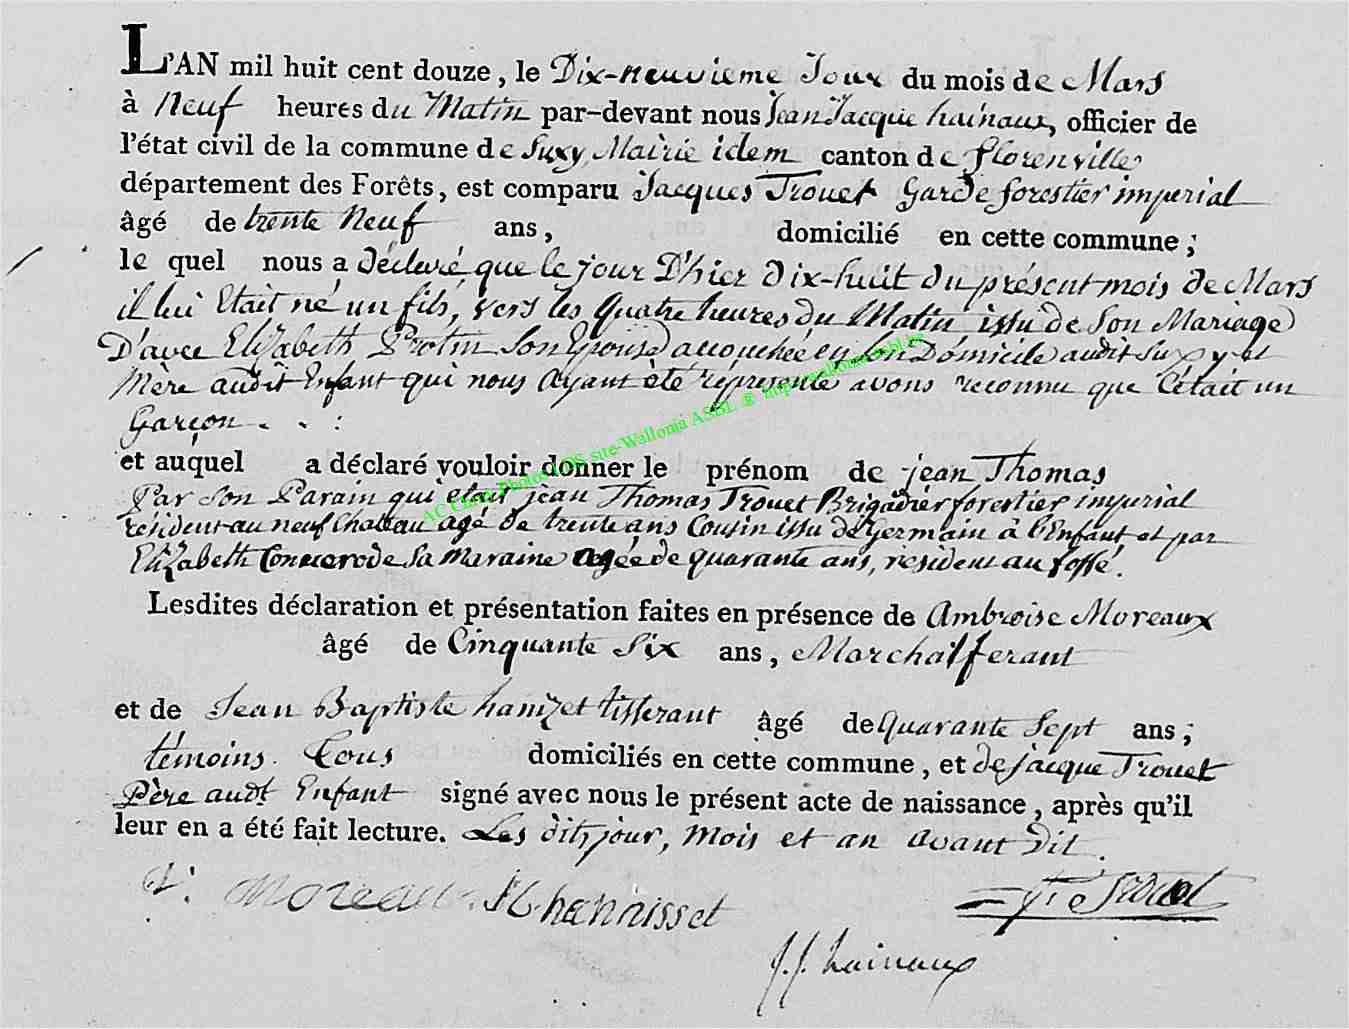 L'AN mil huit cent douze, le Dix-neuvieme Jour du mois de Mars
à Neuf heures du Matin par-devant nous Jean Jacque hainaux, officier de
l'état civil de la commune de Suxy Mairie idem canton de florenville
département des Forêts, est comparu Jacques Trouet Garde forestier imperial
âgé de trente Neuf ans, domicilié en cette commune;
le quel nous a déclaré que le jour D'hier dix-huit du présent mois de Mars
il lui Etait né un fils, vers les quatre heures du Matin issu de Son Mariage
D'avec Elizabeth Protin Son Epouse accouchée en Son Domicile audit Suxy et
Mère audit Enfant qui nous ayant été représenté avons reconnu que C'était un
Garçon . . :
et auquel a déclaré vouloir donner le prénom de jean Thomas
Par Son Parain qui etait jean Thomas Trouet Brigadier forestier imperial
résident au neufchateau agé de trente ans Cousin issu de Germain à l'Enfant et par
Elizabeth Sa Maraine agée de quarante ans, résident au fossé.
Lesdites déclaration et présentation faites en présence de Ambroise Moreaux
âgé de Cinquante Six ans, Marchalferant
et de Jean Baptiste hanizet tisserant âgé de quarante Sept ans;
témoins. Tous domiciliés en cette commune, et de jacque Trouet
Père audt Enfant signé avec nous le présent acte de naissance, après qu'il
leur en a été fait lecture. Les dits jour, mois et an avant Dit.
Moreaux hannisset Trouet
J. J. hainaux